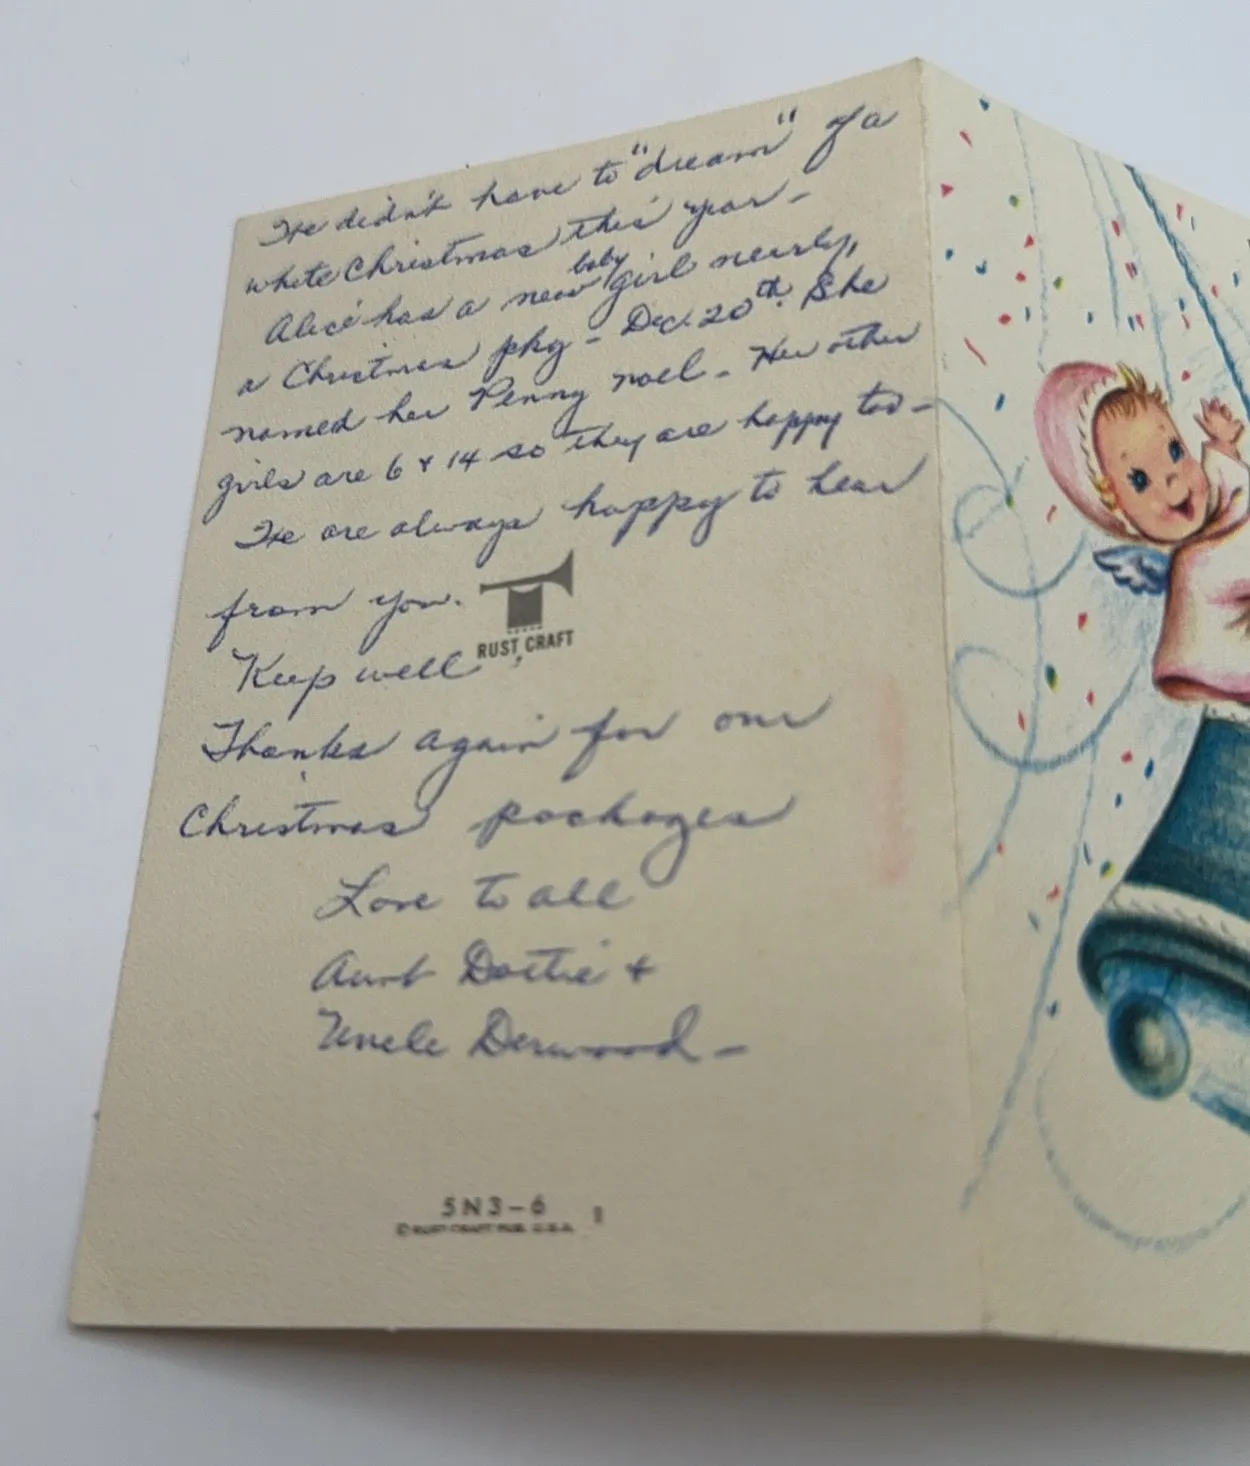 We didn't have to "dream" of a
white Christmas this year-
Alice has a new baby girl nearly,
a Christmas pkg - Dec. 20th. She
named her Penny Noel - Her other
girls are 6 & 14 so they are happy too -
We are always happy to hear
from you.
RUST CRAFT
Keep well,
Thanks again for our
Christmas packages
Love to all
Aunt Dottie &
Uncle Derwood -
5N3-6 1
© RUST CRAFT PUB. U.S.A.